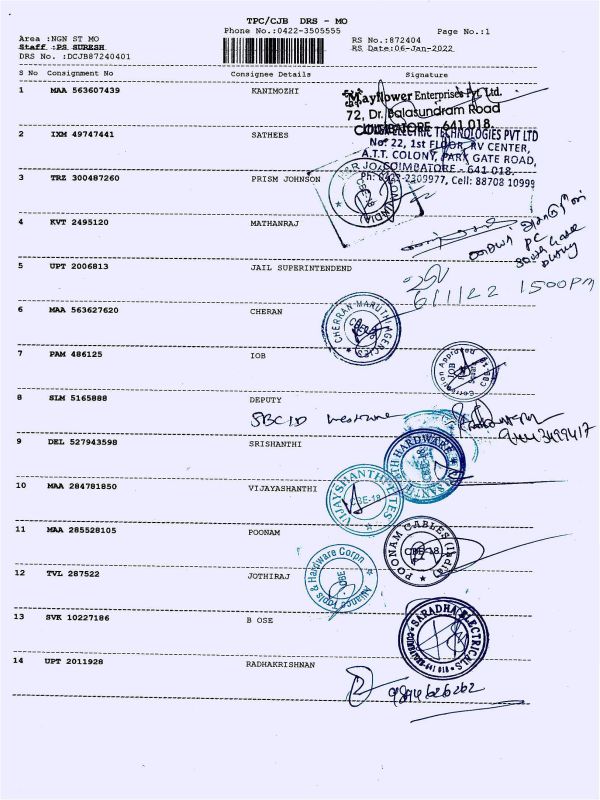 TPC/CJB DRS - MO
Phone No.:0422-3505555 Page No.:1
Area :NGN ST MO RS No.:872404
Staff :PS SURESH RS Date:06-Jan-2022
DRS No. :DCJB87240401
S No Consignment No Consignee Details Signature
1 MAA 563607439 KANIMOZHI
Mayflower Enterprises Pvt. Ltd.
72, Dr. Balasundram Road
COIMBATORE - 641 018.
2 IXM 49747441 SATHEES
TECHNOLOGIES PVT LTD
No. 22, 1st FLOOR, RV CENTER,
A.T.T. COLONY, PARK GATE ROAD,
COIMBATORE - 641 018.
Ph: 0422-2309977, Cell: 88708 10999
3 TRZ 300487260 PRISM JOHNSON
4 KVT 2495120 MATHANRAJ
PC
5 UPT 2006813 JAIL SUPERINTENDEND
6/1/22 1500PM
6 MAA 563627620 CHERAN
CHERRAN MARUTHI AGENCIES
7 PAM 486125 IOB
IOB
8 SLM 5165888 DEPUTY
SBCID
9 DEL 527943598 SRISHANTHI
HARDWARE
10 MAA 284781850 VIJAYASHANTHI
CBE-18
11 MAA 285528105 POONAM
POONAM CABLES (India)
CBE-18
12 TVL 287522 JOTHIRAJ
Alliance Tools & Hardware Corpn
CBE
13 SVK 10227186 B OSE
SARADHA ELECTRICALS
14 UPT 2011928 RADHAKRISHNAN
9894626262